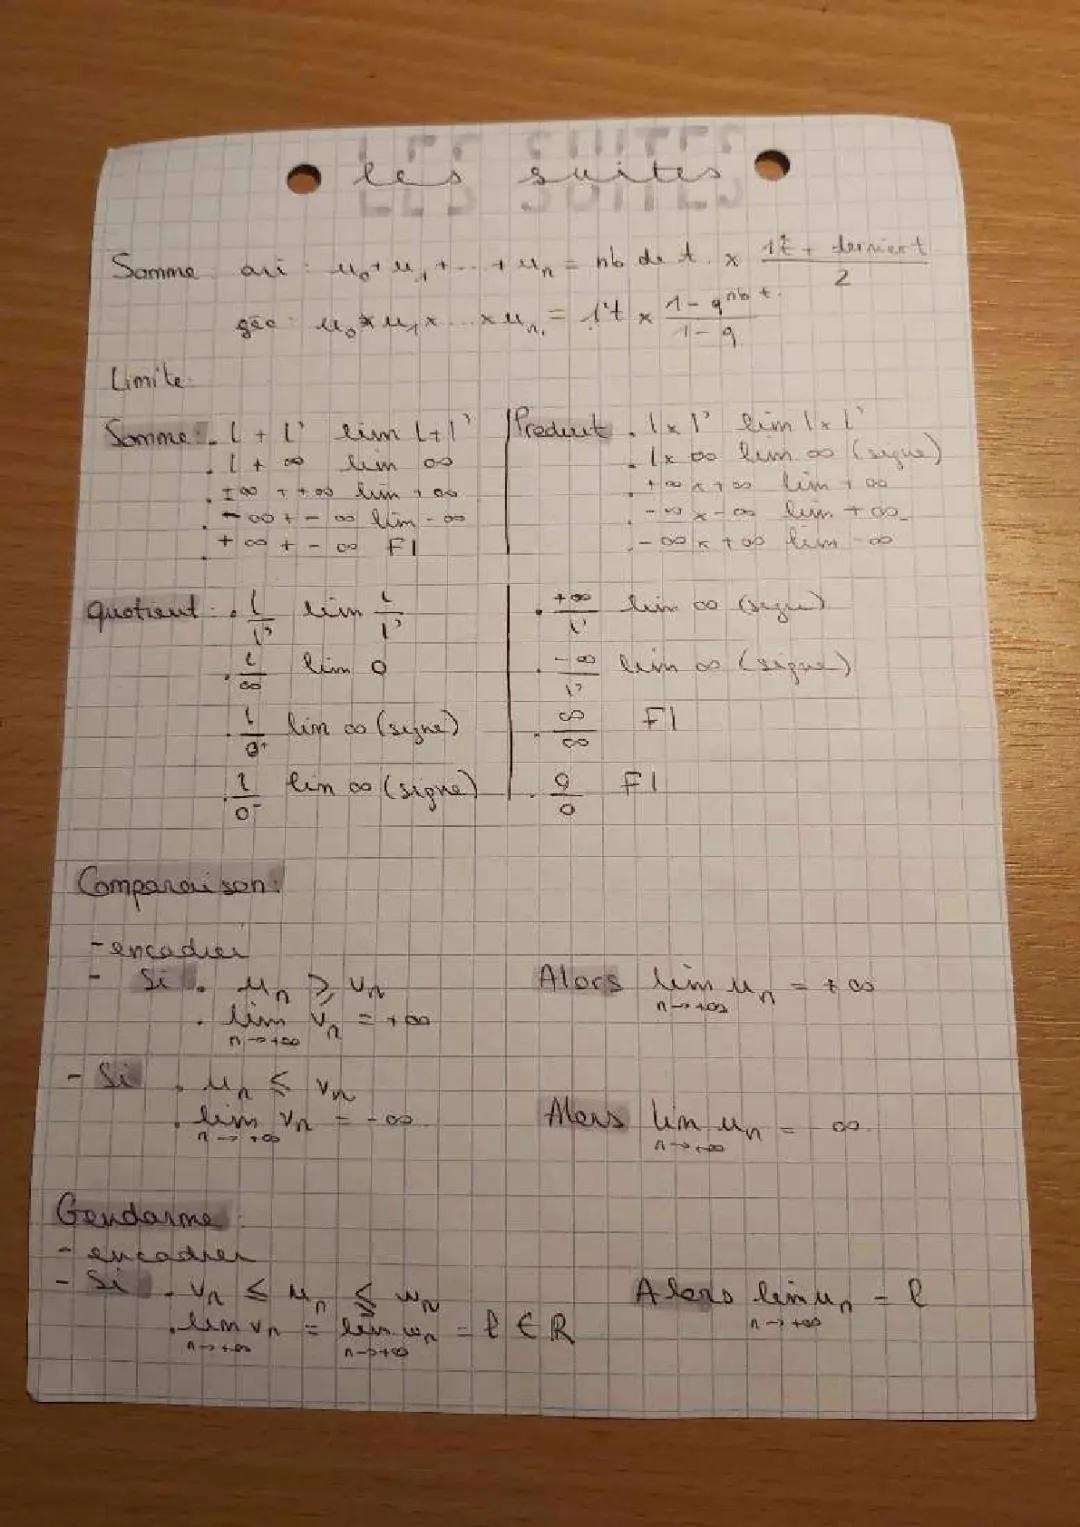 les suites
Somme ari : u₀ + u₁ + ... + uₙ = nb de t. x (1t + dernier t)/2
géo : u₀ x u₁ x ... x uₙ = 1t x (1 - q^nb t.)/(1 - q)
Limite :
Somme : . l + l' lim l + l'
. l + ∞ lim ∞
. +∞ + +∞ lim +∞
. -∞ + -∞ lim -∞
. +∞ + -∞ FI
Produit . l x l' lim l x l'
. l x ∞ lim ∞ (signe)
. +∞ x +∞ lim +∞
. -∞ x -∞ lim +∞
. -∞ x +∞ lim -∞
quotient : . l/l' lim l/l'
. l/∞ lim 0
. l/0⁺ lim ∞ (signe)
. l/0⁻ lim ∞ (signe)
. +∞/l' lim ∞ (signe)
. -∞/l' lim ∞ (signe)
. ∞/∞ FI
. 0/0 FI
Comparaison :
- encadrer
- Si . uₙ ⩾ vₙ Alors lim uₙ = +∞
n→+∞
. lim vₙ = +∞
n→+∞
- Si . uₙ ≤ vₙ
. lim vₙ = -∞ Alors lim uₙ = -∞.
n→+∞ n→+∞
Gendarme :
- encadrer
- Si . vₙ ≤ uₙ ≤ wₙ Alors lim uₙ = l
n→+∞
. lim vₙ = lim wₙ = l ∈ R
n→+∞ n→+∞